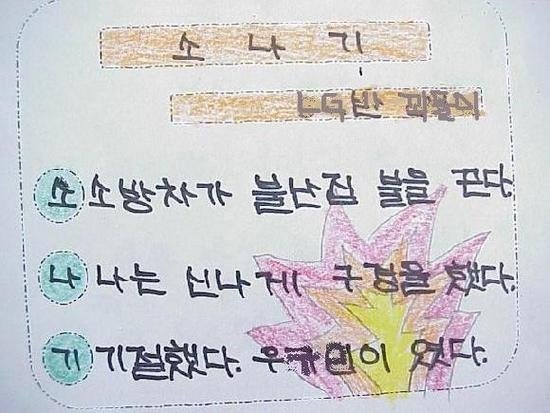 소 나 기
소 소방차가 불난집 불을 끈다.
나 나는 신나게 구경을 했다.
기 기절했다. 였다.